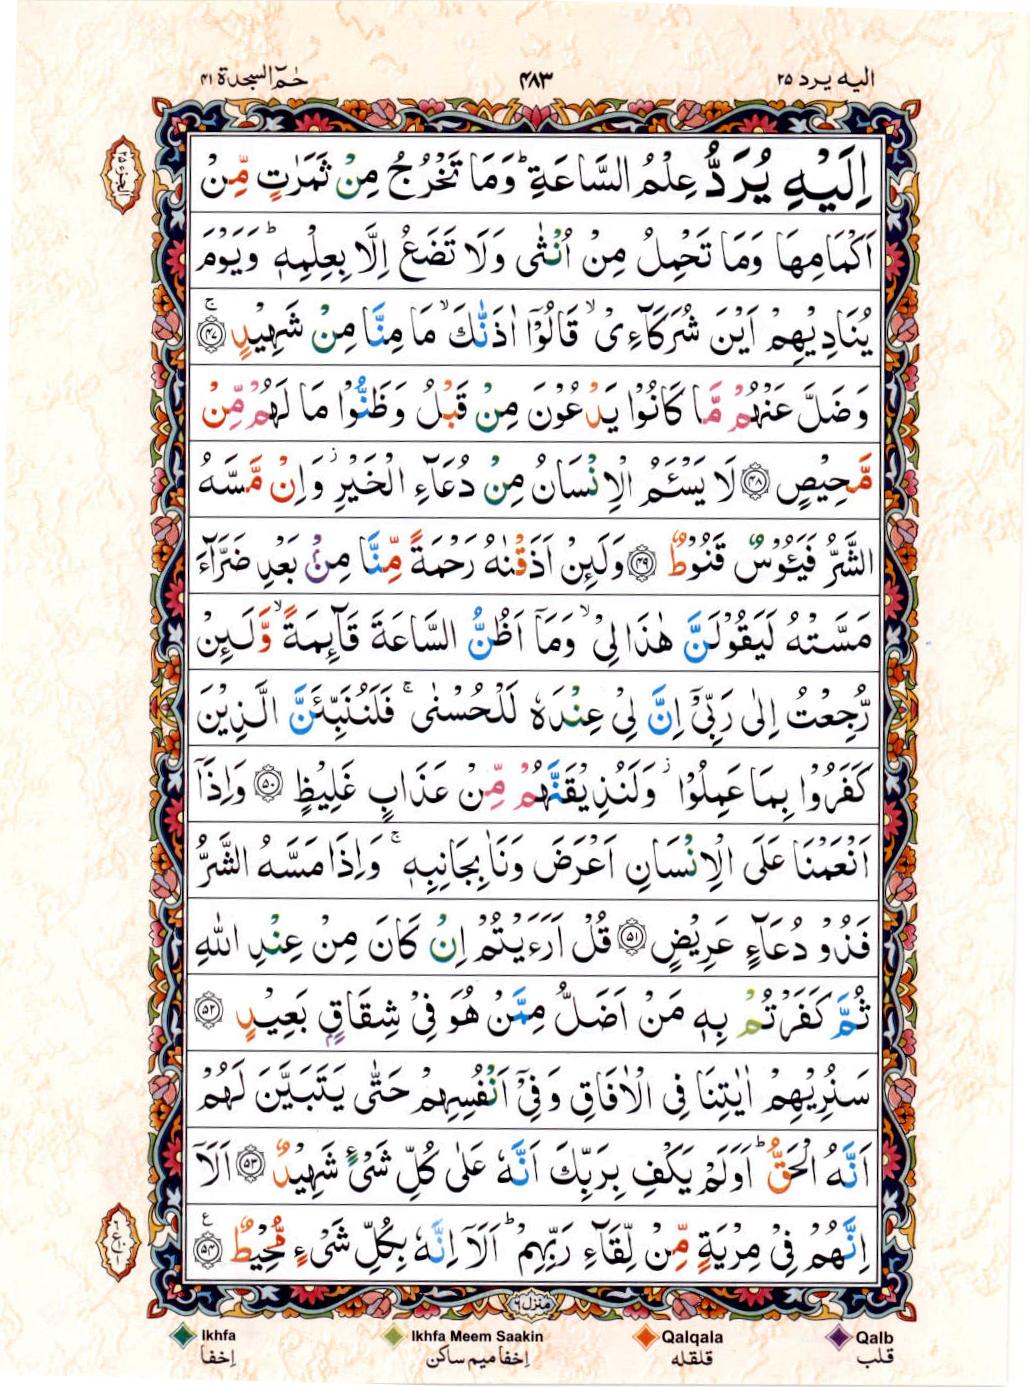 الیه یرد ۲۵
۴۸۳
حٰمٓ السجدة ۴۱
اِلَيْهِ يُرَدُّ عِلْمُ السَّاعَةِ ؕ وَمَا تَخْرُجُ مِنْ ثَمَرٰتٍ مِّنْ
اَكْمَامِهَا وَمَا تَحْمِلُ مِنْ اُنْثٰى وَلَا تَضَعُ اِلَّا بِعِلْمِهٖ ؕ وَيَوْمَ
يُنَادِيْهِمْ اَيْنَ شُرَكَآءِىْ ۙ قَالُوْٓا اٰذَنّٰكَ ۙ مَا مِنَّا مِنْ شَهِيْدٍ ۚ ﴿۴۷﴾
وَضَلَّ عَنْهُمْ مَّا كَانُوْا يَدْعُوْنَ مِنْ قَبْلُ وَظَنُّوْا مَا لَهُمْ مِّنْ
مَّحِيْصٍ ﴿۴۸﴾ لَا يَسْـَٔمُ الْاِنْسَانُ مِنْ دُعَآءِ الْخَيْرِ ؗ وَاِنْ مَّسَّهُ
الشَّرُّ فَيَـُٔوْسٌ قَنُوْطٌ ﴿۴۹﴾ وَلَئِنْ اَذَقْنٰهُ رَحْمَةً مِّنَّا مِنْۢ بَعْدِ ضَرَّآءَ
مَسَّتْهُ لَيَقُوْلَنَّ هٰذَا لِىْ ۙ وَمَآ اَظُنُّ السَّاعَةَ قَآئِمَةً ۙ وَّلَئِنْ
رُّجِعْتُ اِلٰى رَبِّىْٓ اِنَّ لِىْ عِنْدَهٗ لَلْحُسْنٰى ۚ فَلَنُنَبِّئَنَّ الَّذِيْنَ
كَفَرُوْا بِمَا عَمِلُوْا ؗ وَلَنُذِيْقَنَّهُمْ مِّنْ عَذَابٍ غَلِيْظٍ ﴿۵۰﴾ وَاِذَآ
اَنْعَمْنَا عَلَى الْاِنْسَانِ اَعْرَضَ وَنَاٰ بِجَانِبِهٖ ۚ وَاِذَا مَسَّهُ الشَّرُّ
فَذُوْ دُعَآءٍ عَرِيْضٍ ﴿۵۱﴾ قُلْ اَرَءَيْتُمْ اِنْ كَانَ مِنْ عِنْدِ اللّٰهِ
ثُمَّ كَفَرْتُمْ بِهٖ مَنْ اَضَلُّ مِمَّنْ هُوَ فِىْ شِقَاقٍۭ بَعِيْدٍ ﴿۵۲﴾
سَنُرِيْهِمْ اٰيٰتِنَا فِى الْاٰفَاقِ وَفِىْٓ اَنْفُسِهِمْ حَتّٰى يَتَبَيَّنَ لَهُمْ
اَنَّهُ الْحَقُّ ؕ اَوَلَمْ يَكْفِ بِرَبِّكَ اَنَّهٗ عَلٰى كُلِّ شَىْءٍ شَهِيْدٌ ﴿۵۳﴾ اَلَآ
اِنَّهُمْ فِىْ مِرْيَةٍ مِّنْ لِّقَآءِ رَبِّهِمْ ؕ اَلَآ اِنَّهٗ بِكُلِّ شَىْءٍ مُّحِيْطٌ ﴿۵۴﴾ ع
منزل ٦
Ikhfa Ikhfa Meem Saakin Qalqala Qalb
إخفا إخفا میم ساکن قلقله قلب